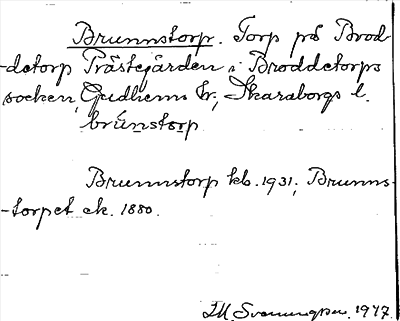 Brunnstorp. Torp på Brod-
-detorp Prästgården i Broddetorps
socken, Gudhems hr, Skaraborgs l.
brúnstɔrp
Brunnstorp kb. 1931; Brunns-
-torpet ek. 1880.
Svenungsson. 1947.